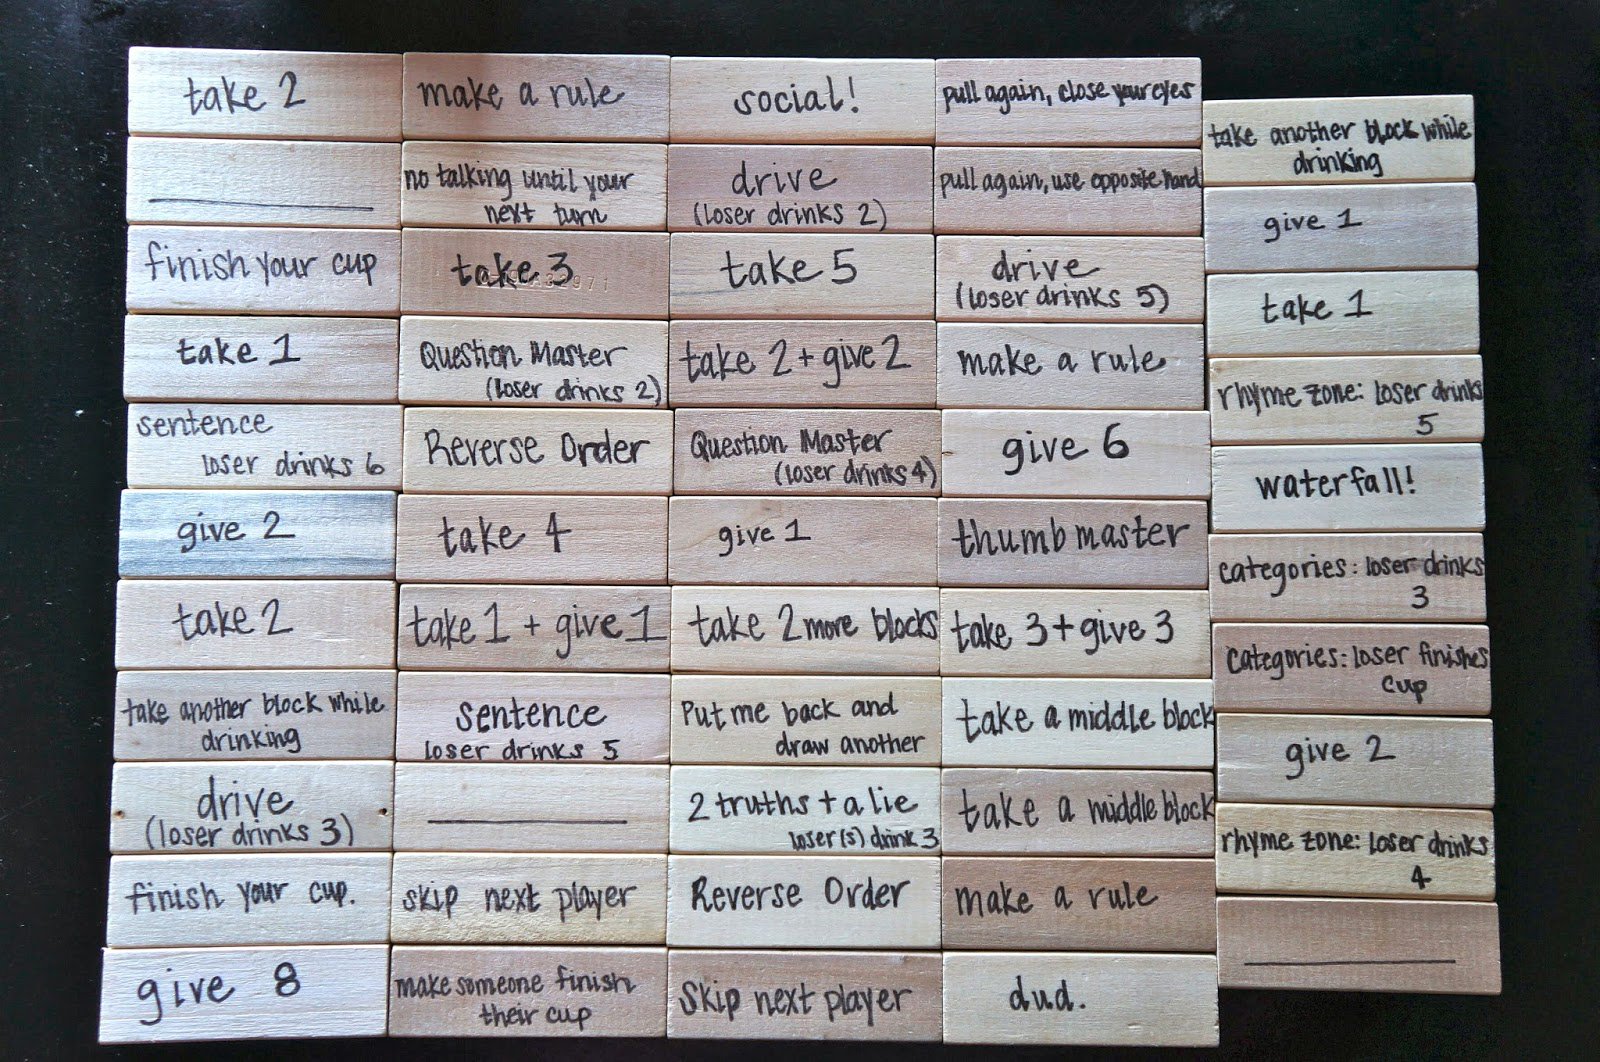 take 2
make a rule
social!
pull again, close your eyes
take another block while
drinking
no talking until your
next turn
drive
(loser drinks 2)
pull again, use opposite hand
give 1
finish your cup
take 3
take 5
drive
(loser drinks 5)
take 1
take 1
Question Master
(loser drinks 2)
take 2 + give 2
make a rule
rhyme zone: loser drinks
5
sentence
loser drinks 6
Reverse Order
Question Master
(loser drinks 4)
give 6
waterfall!
give 2
take 4
give 1
thumb master
categories: loser drinks
3
take 2
take 1 + give 1
take 2 more blocks
take 3 + give 3
categories: loser finishes
cup
take another block while
drinking
sentence
loser drinks 5
Put me back and
draw another
take a middle block
give 2
drive
(loser drinks 3)
2 truths + a lie
loser(s) drink 3
take a middle block
rhyme zone: loser drinks
4
finish your cup.
skip next player
Reverse Order
make a rule
give 8
make someone finish
their cup
Skip next player
dud.